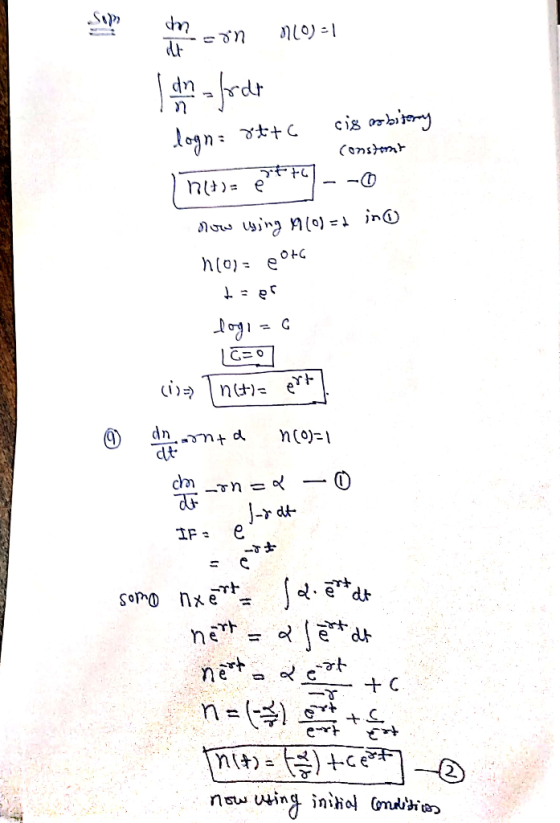 Solⁿ
dn/dt = rn n(0)=1
∫ dn/n = ∫ r dt
log n = rt + c c is arbitory
constant
n(t) = e^{rt+c} - - ①
now using n(0) = 1 in ①
n(0) = e^{0+c}
1 = e^c
log 1 = c
c = 0
(i) ⇒ n(t) = e^{rt}.
⑨ dn/dt = rn + α n(0)=1
dn/dt - rn = α — ①
IF = e^{∫-r dt}
= e^{-rt}
solⁿ① n × e^{-rt} = ∫ α . e^{-rt} dt
n e^{-rt} = α ∫ e^{-rt} dt
n e^{-rt} = α e^{-rt}/-r + c
n = (-α/r) e^{-rt}/e^{-rt} + c/e^{-rt}
n(t) = (-α/r) + c e^{rt} — ②
now using initial conditions